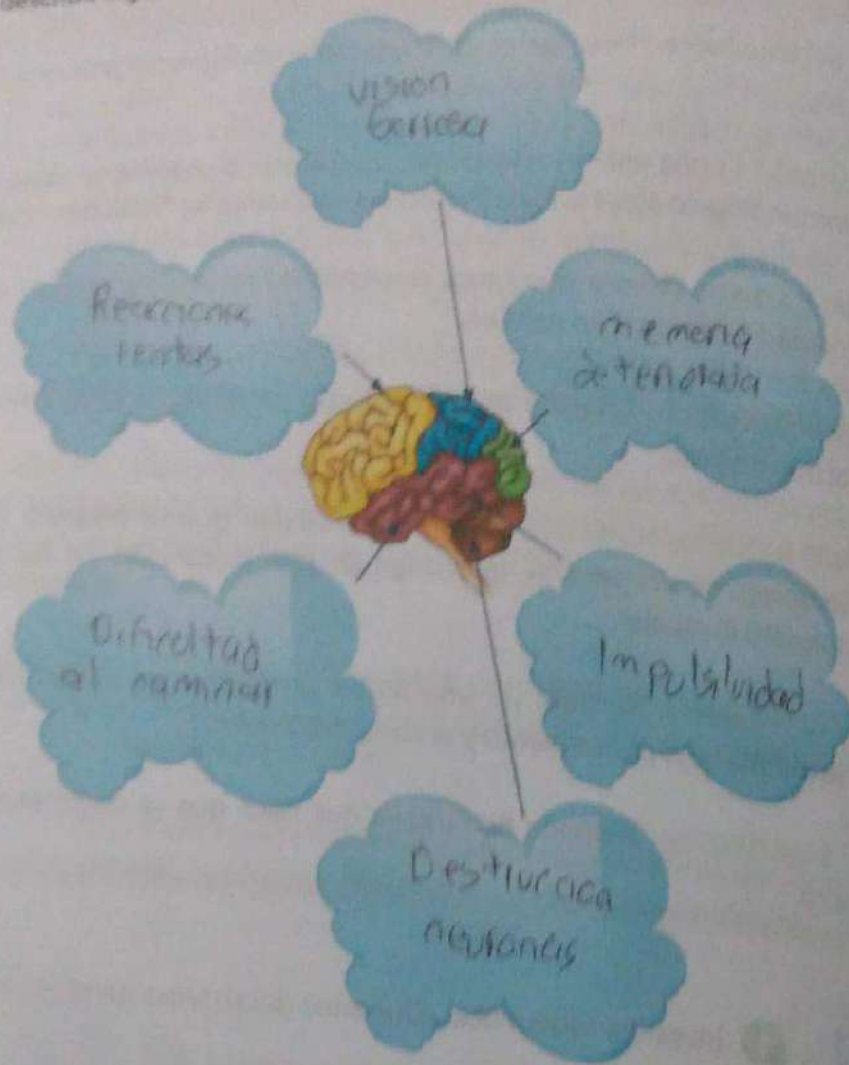 vision
borrosa
Reacciones
lentas
memoria
deteriorada
Dificultad
al caminar
Impulsividad
Destruccion
neuronas